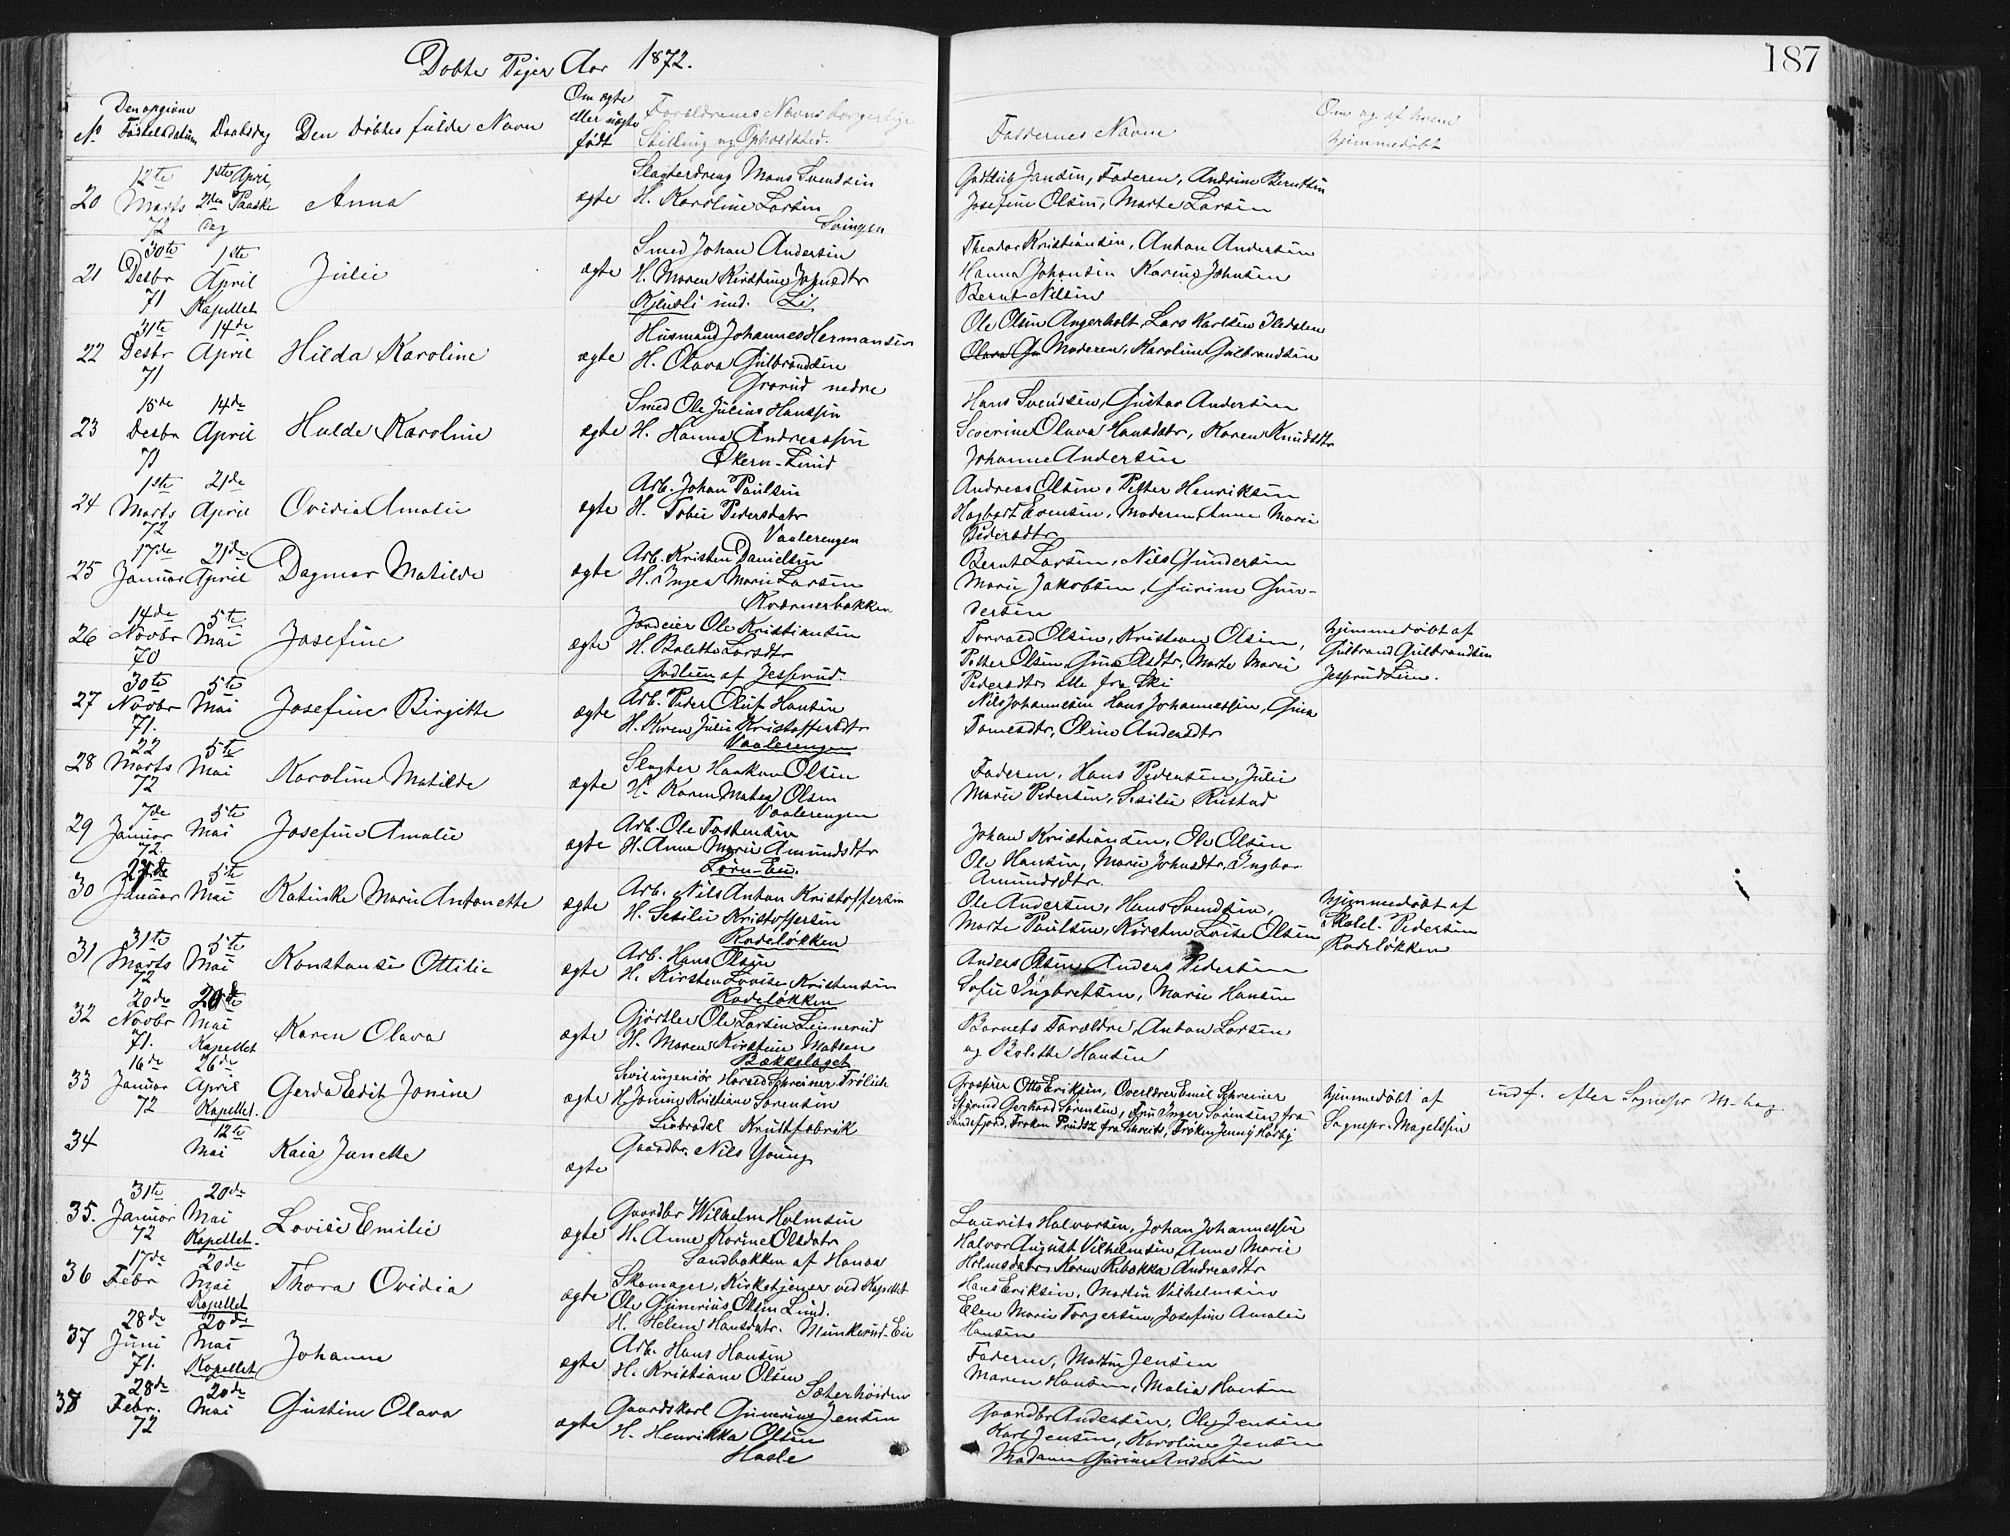 Døbte Piger Aar 1872.
187
No Den opgivne Fødselsdatum Daabsdag Den Døbtes fulde Navn Om ægte eller uægte født Forældrenes Navne borgerlige Stilling og Opholdsted. Faddernes Navne Om og af hvem hjemmedøbt
20 12te Marts 72 1ste April 2den Paaske Dag Anna ægte Slagterdreng Mons Svendsen
H. Karoline Larsen
Svingen
Gottlieb Jansen, Faderen, Andrine Berntsen
Josefine Olsen, Marte Larsen
21 30te Desbr 71 1ste April Kapellet Julie ægte Smed Johan Andersen
H. Maren Kirstine Johnsdtr
Li
Theodor Kristiansen, Anton Andersen
Hanna Johansen Karine Johnsen
Bernt Nilsen
22 31te Desbr 71 14de April Hilda Karoline ægte Husmand Johannes Hermansen
H. Olava Gulbrandsen
Grorud nedre
Ole Olsen Angerholt, Lars Karlsen
Moderen, Karoline Gulbrandsen
23 15de Desbr 71 14de April Hulde Karoline ægte Smed Ole Julius Hanssen
H. Hanna Andreassen
Økern-Lund
Hans Svendsen, Gustav Andersen
Severine Olava Hansdatr, Karen Knudsdtr
Johanne Andersen
24 1ste Marts 72 21de April Ovidia Amalie ægte Arb. Johan Paulsen
H. Tobie Pedersdatr
Vaalerengen
Andreas Olsen, Petter Henriksen
Hagbart Evensen, Moderen, Anne Marie
Pedersdtr
25 17de Januar 21de April Dagmar Matilde ægte Arb. Kristen Danielsen
H. Ingea Marie Larsen
Kværnerbakken
Bernt Larsen, Nils Gundersen
Marie Jakobsen, Gurine Gun-
dersen
26 14de Novbr 70 5te Mai Josefine ægte Jordeier Ole Kristiansen
H. Bolette Larsdtr
Godlien af Jesprud
Torvald Olsen, Kristian Olsen,
Petter Olsen, Gina Olsdtr, Marte Marie
Pedersdtr alle fra Ski
hjemmedøbt af
Gulbrand Gulbrandsen
Jesprud Eien.
27 30te Novbr 71. 5te Mai Josefine Birgitte ægte Arb. Peder Oluf Hansen
H. Karen Julie Kristoffersdtr
Vaalerengen
Nils Johannesen Hans Johannessen, Gina
Tomesdtr, Oline Andersdtr
28 22 Marts 72 5te Mai Karoline Matilde ægte Slagter Haakon Olsen
H. Karen Mathea Olsen
Vaalerengen
Faderen, Hans Pedersen, Julie
Marie Pedersen, Sesilie Rustad
29 7de Januar 72. 5te Mai Josefine Amalie ægte Arb. Ole Tostensen
H. Anne Marie Amundsdtr
Lørn-Eie.
Johan Kristiansen, Ole Olsen
Ole Hansen, Marie Johnsdtr, Ingbor
Amundsdtr
30 Januar 5te Mai Katinke Marie Antonette ægte Arb. Nils Anton Kristoffersen
H. Sesilie Kristoffersen
Rodeløkken
Ole Andersen, Hans Svendsen,
Marte Paulsen, Kirsten Lovise Olsen
hjemmedøbt af
Skolel. Pedersen
Rodeløkken
31 31te Marts 72 5te Mai Konstanse Ottilie ægte Arb. Hans Olsen
H. Kirsten Lovise Kristensen
Rodeløkken
Anders Olsen, Anders Pedersen
Sofie Ingbretsen, Marie Hansen
32 20de Novbr 71. 20de Mai Kapellet Karen Olava ægte Gjørtler Ole Larsen Lennerud
H. Maren Kirstine Matsen
Bækkelaget
Barnets Forældre, Anton Larsen
og Bolette Hansen
33 16de Januar 72 26de April Kapellet. Gerda Edit Janine ægte Sivilingeniør Harald Schreiner Frölich
H. Janine Kristiane Sørensen
Ljabrodal Krudtfabrik
Grosserer Otto Eriksen, Overlærer Emil Schreiner
Gerhard Sørensen, Fru Inger Sørensen fra
Sandefjord, Frøken Fröken Jenny
hjemmedøbt af
Sognepr. Magelssen
indf. efter Sognepr
34 12te Mai Kaia Janette ægte Gaardbr. Nils Young
35. 31te Januar 72 20de Mai Kapellet. Lovise Emilie ægte Gaardbr Wilhelm Holmsen
H. Anne Karine Olsdatr
Sandbakken af Hanaa
Laurits Halvorsen, Johan Johannessen
Halvor August Vilhelmsen, Anne Marie
Holmsdatr, Karen Rebekka Andreasdtr
36 17de Febr 20de Mai Kapellet Thora Ovidia ægte Skomager, Kirketjener ved Kapellet
Ole Gunerius Olsen Lund.
H. Helene Hansdatr. Munkerud-Eie
Hans Eriksen, Martin Vilhelmsen
Elen Marie Torgersen, Josefine Amalie
Hansen
37 28de Juni 71. 20de Mai Kapellet Johanne ægte Arb. Hans Hansen
H. Kristiane Olsen
Sæterhøiden
Faderen, Martin Jensen
Maren Hansen, Malia Hansen
38 28de Febr. 72 20de Mai Gustine Olava ægte Gaardskarl Gunerius Jensen
H. Henrikka Olsen
Hasle
Gaardbr Andersen, Ole Jensen
Karl Jensen, Karoline Jensen
Madame Gurine Andersen